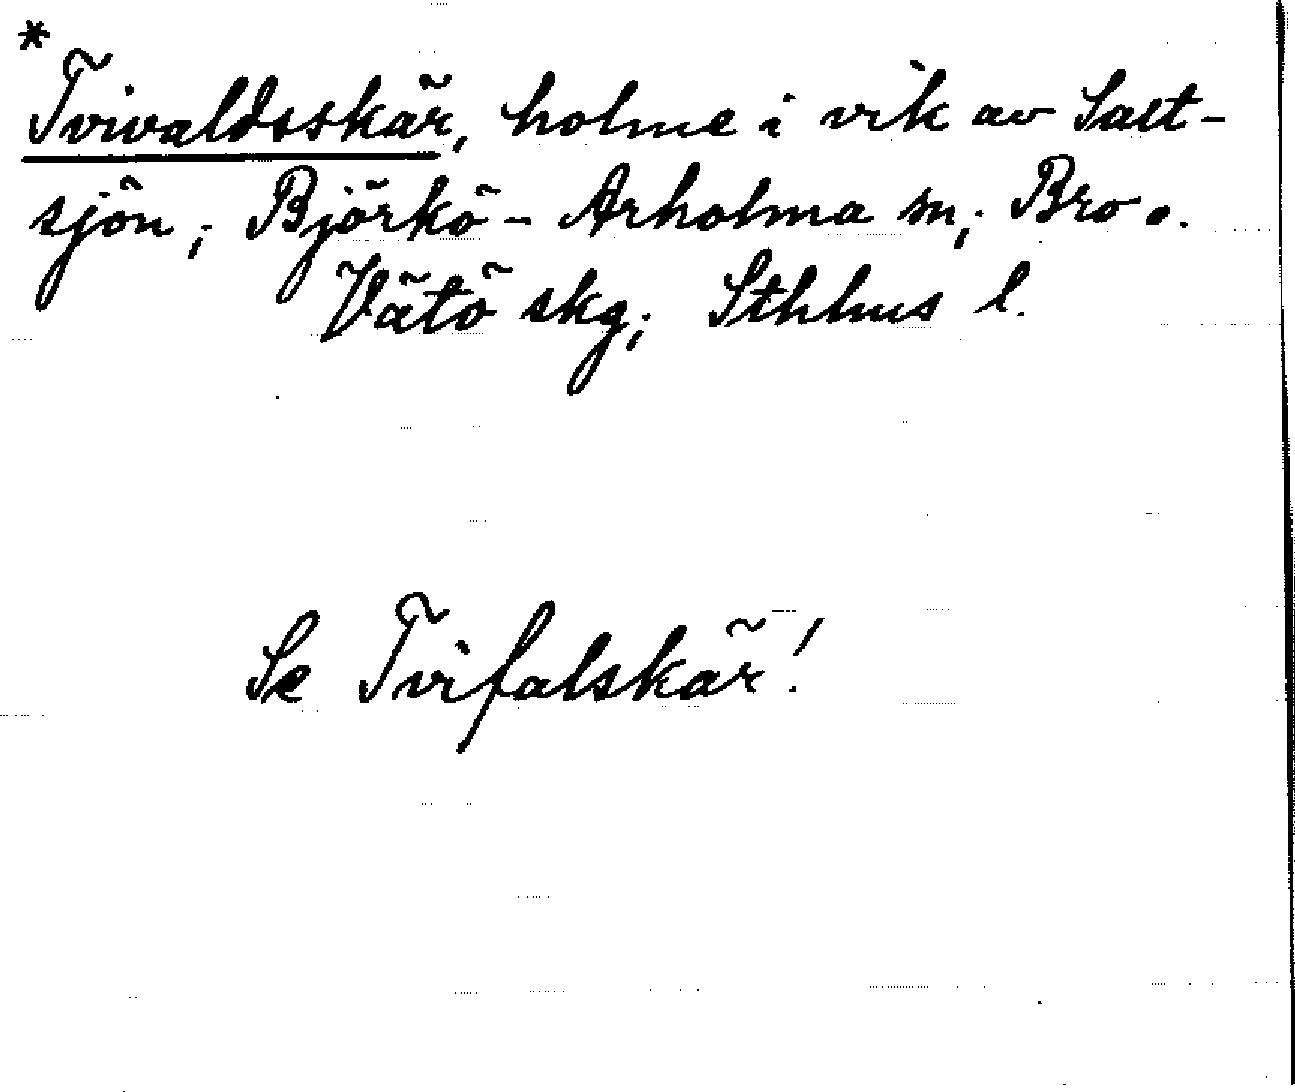 *
Tvivaldsskär, holme i vik av Salt-
sjön; Björkö-Arholma sn; Bro o.
Vätö skg; Sthlms l.
Se Tvifalskär!